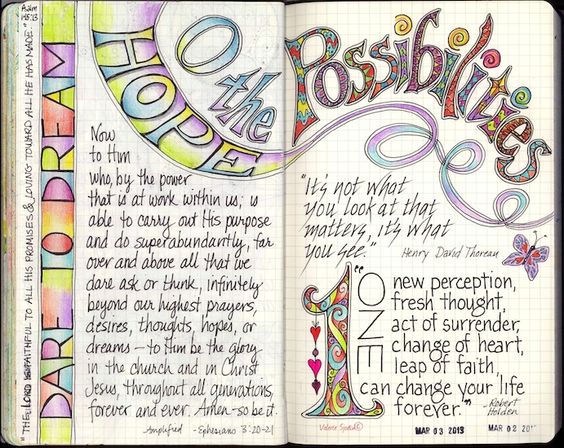 Psalm
145:13
"THE LORD IS FAITHFUL TO ALL HIS PROMISES & LOVING TOWARD ALL HE HAS MADE."
DARE TO DREAM
HOPE
O the
Possibilities
Now
to Him
who, by the power
that is at work within us, is
able to carry out His purpose
and do superabundantly, far
over and above all that we
dare ask or think, infinitely
beyond our highest prayers,
desires, thoughts, hopes, or
dreams – to Him be the glory
in the church and in Christ
Jesus, throughout all generations,
forever and ever. Amen - so be it.
Amplified - Ephesians 3:20-21
"It's not what
you look at that
matters, it's what
you see."
Henry David Thoreau
"1
ONE
new perception,
fresh thought,
act of surrender,
change of heart,
leap of faith,
can change your life
forever."
- Robert
Holden
Valerie Sjodin ©
MAR 03 2013
MAR 02 20